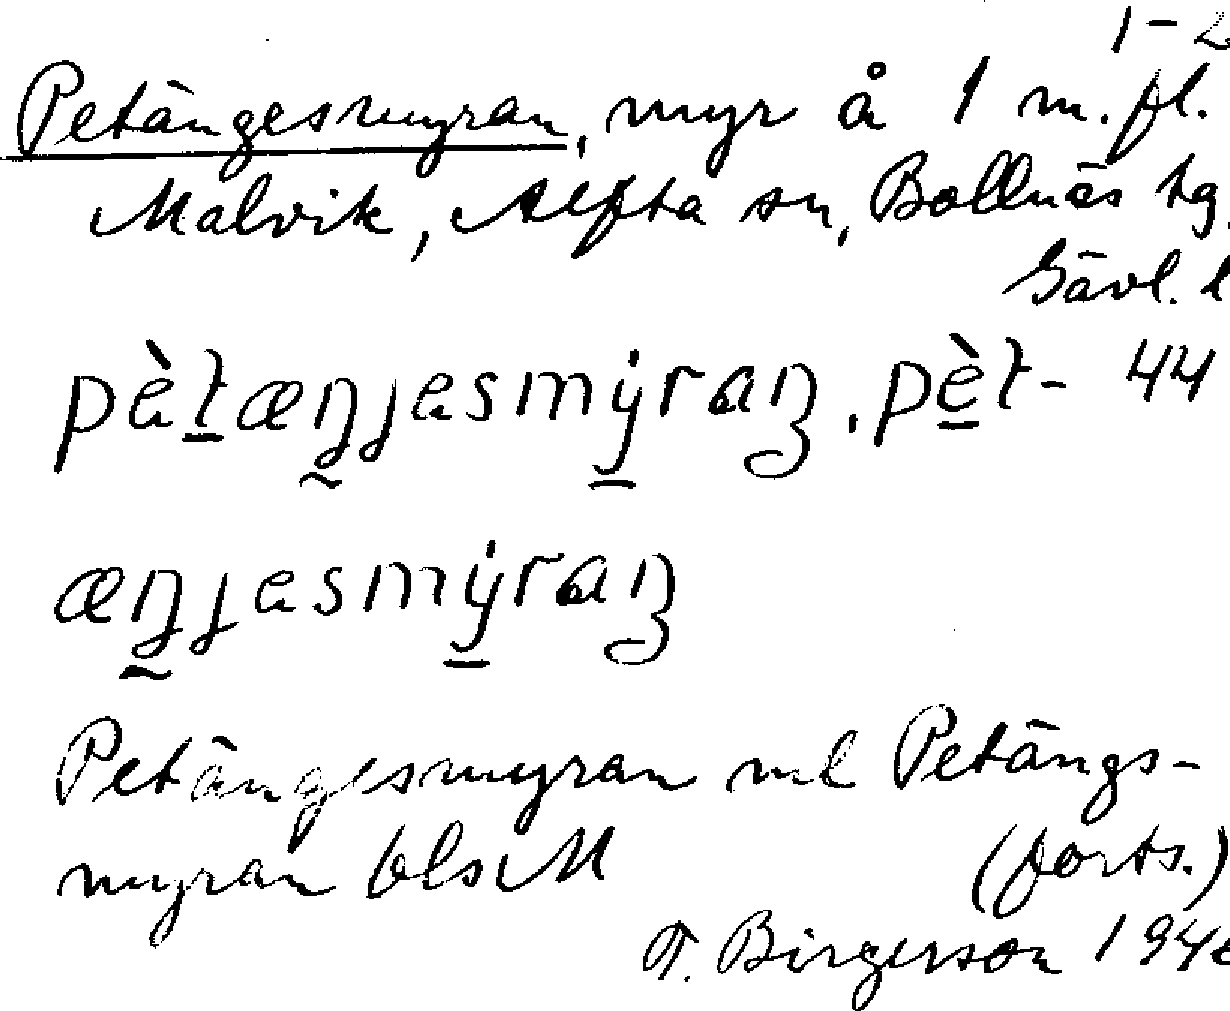 1-2
Petängesmyran, myr å 1 m.fl.
Malvik, Alfta sn, Bollnäs tg.
Gävl. l
pètæŋjesmýraŋ. pèt- 44
æŋjesmýraŋ
Petängesmyran ml Petängs-
myran bls M (forts.)
T. Birgerson 194